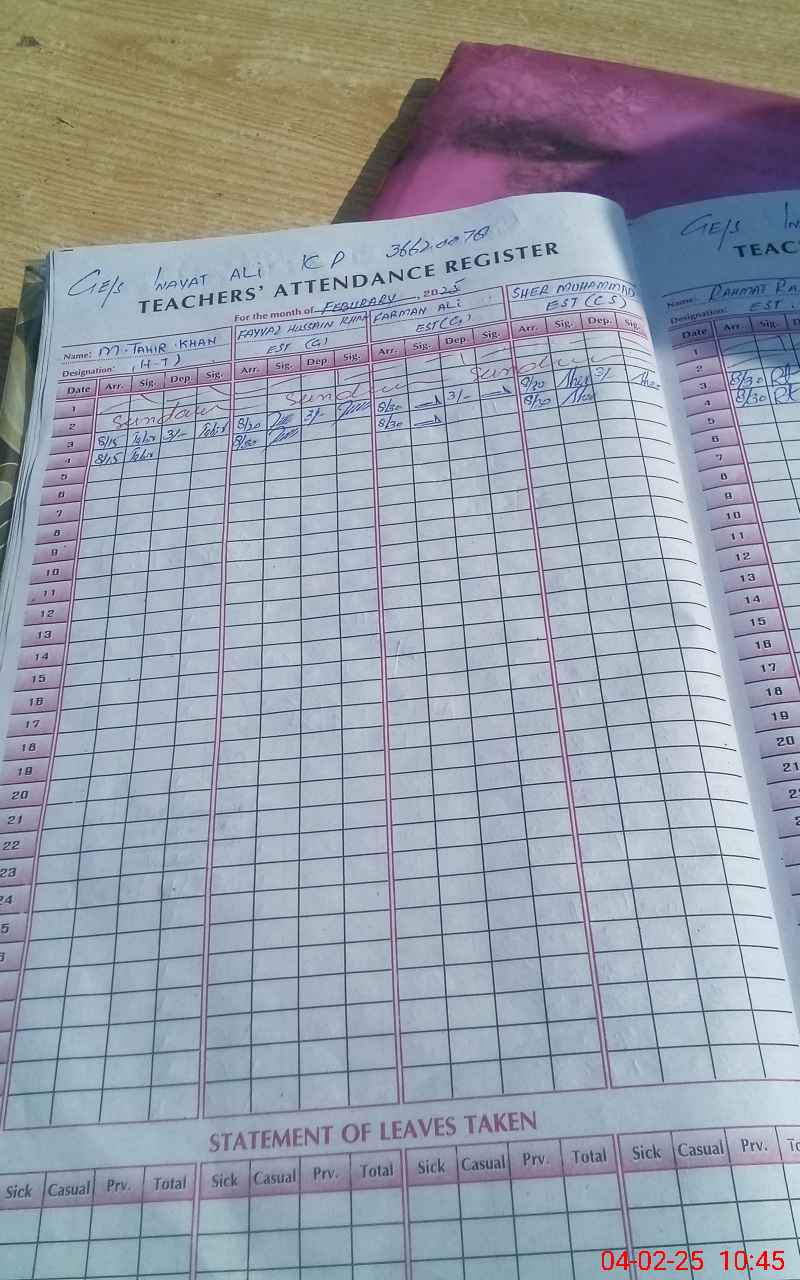 GE/S INAYAT ALI KP 36620078
TEACHERS' ATTENDANCE REGISTER
For the month of FEBUBARY, 2025
Name: M. TAHIR KHAN FAYYAZ HUSSAIN KHAN FARMAN ALI SHER MUHAMMAD
Designation: (H-T) EST (G) EST(G) EST (CS)
Date Arr. Sig. Dep. Sig. Arr. Sig. Dep. Sig. Arr. Sig. Dep. Sig. Arr. Sig. Dep. Sig.
1
2 Sunday Sunday Sunday
3 8/15 Tahir 3/- Tahir 8/30 3/- 8/30 3/- 8/30 Sher 3/- Sher
4 8/15 Tahir 8/30 8/30 8/30 Sher
5
6
7
8
9
10
11
12
13
14
15
16
17
18
19
20
21
22
23
24
5
STATEMENT OF LEAVES TAKEN
Sick Casual Prv. Total Sick Casual Prv. Total Sick Casual Prv. Total Sick Casual Prv.
GE/S
TEAC
Name: RAHMAT
Designation: EST
Date Arr. Sig.
1
2
3 8/30
4 8/30
5
6
7
8
9
10
11
12
13
14
15
16
17
18
19
20
21
04-02-25 10:45